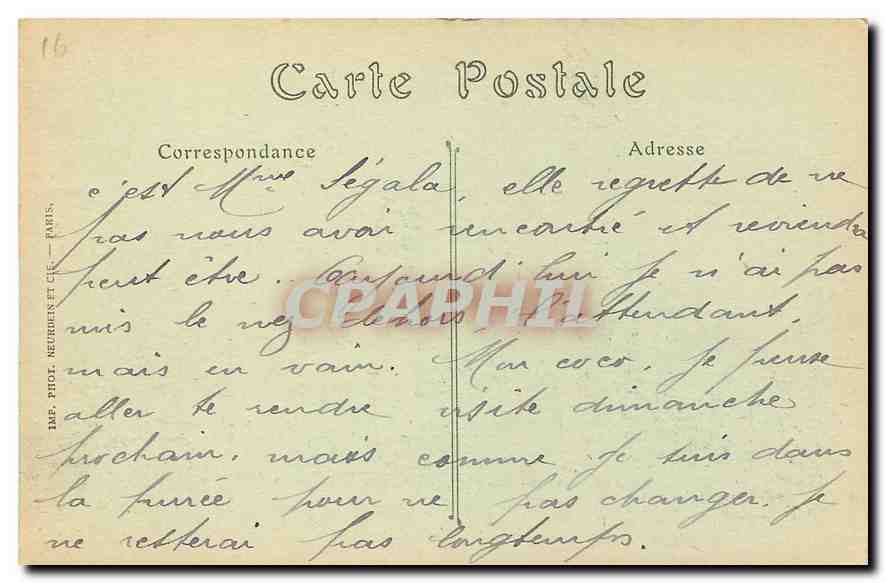 16
Carte Postale
Correspondance
Adresse
c'est Mme Ségala, elle regrette de ne
pas nous avoir rencontré et reviendra
peut être. Aujourd'hui je n'ai pas
mis le nez dehors, t'attendant,
mais en vain. Mon coco, je pense
aller te rendre visite dimanche
prochain, mais comme je suis dans
la purée pour ne pas changer, je
ne resterai pas longtemps.
IMP. PHOT. NEURDEIN ET CIE. — PARIS.
CPAPHIL